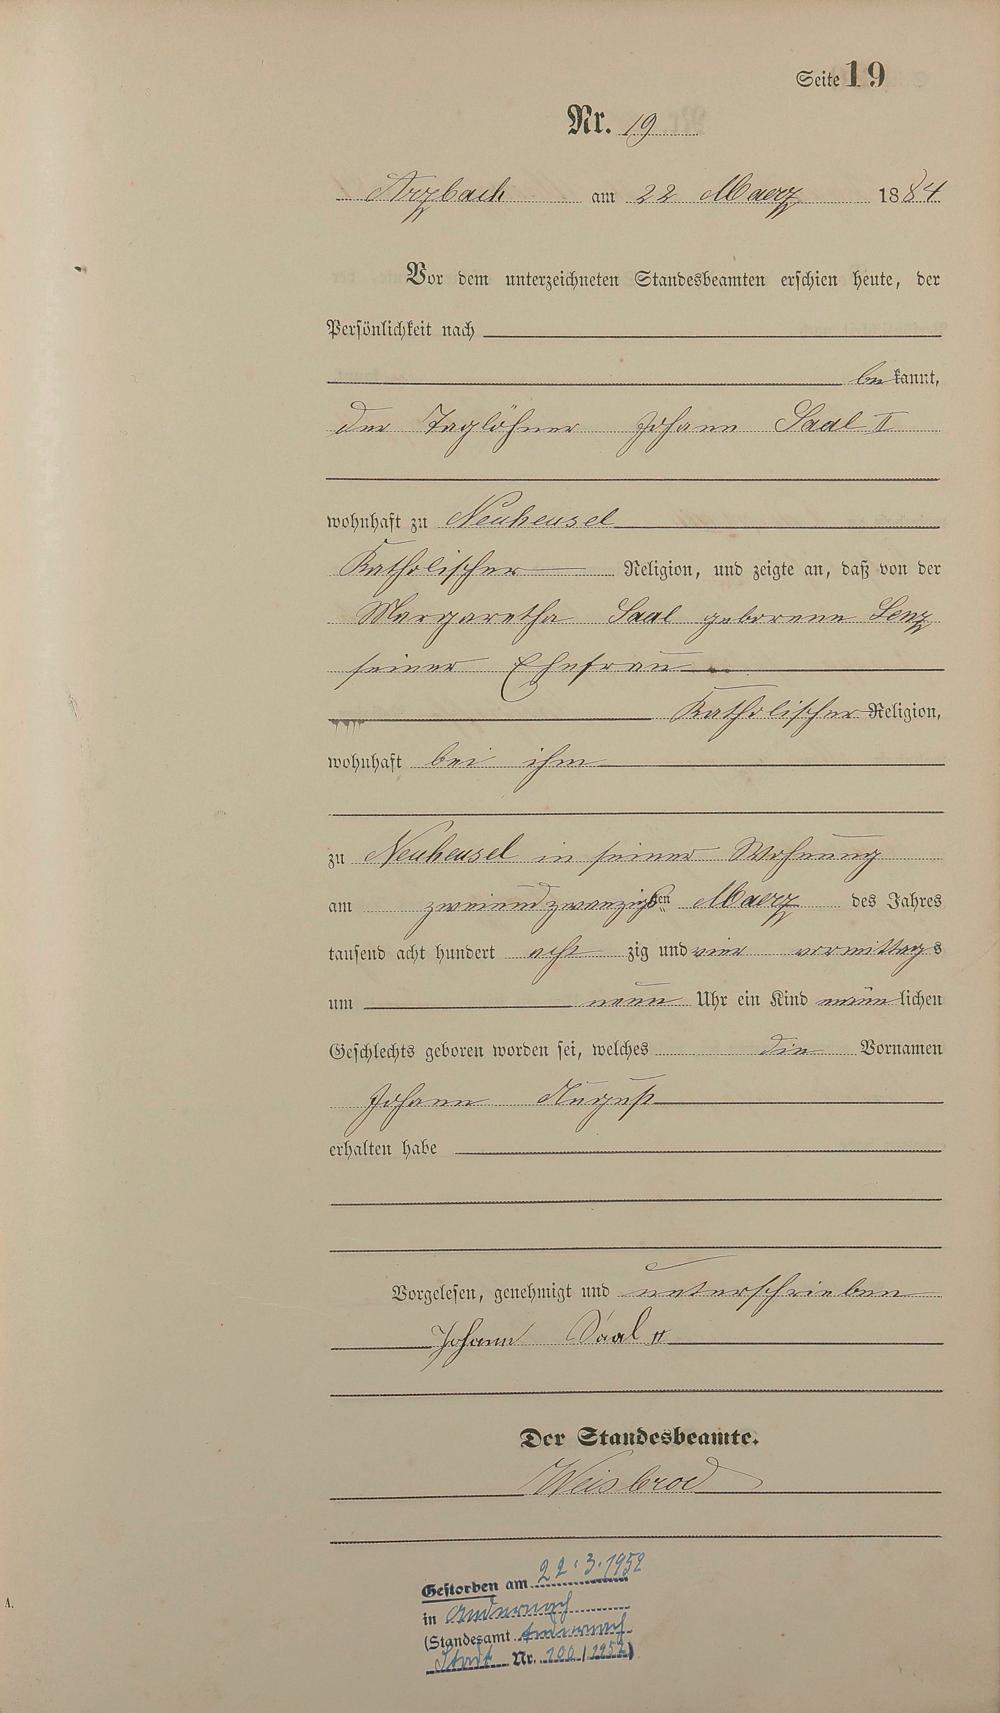 Seite 19
Nr. 19
Arzbach am 22 Maerz 1884
Vor dem unterzeichneten Standesbeamten erschien heute, der
Persönlichkeit nach
bekannt,
der Taglöhner Johann Saal II
wohnhaft zu Neuheusel
Katholischer Religion, und zeigte an, daß von der
Margaretha Saal geborene Lenz
seiner Ehefrau
Katholischer Religion,
wohnhaft bei ihm
zu Neuheusel in seiner Wohnung
am zweiundzwanzigsten Maerz des Jahres
tausend acht hundert acht zig und vier vormittags
um neun Uhr ein Kind männlichen
Geschlechts geboren worden sei, welches die Vornamen
Johann August
erhalten habe
Vorgelesen, genehmigt und unterschrieben
Johann Saal II
Der Standesbeamte.
Weisbrod
Gestorben am 22.3.1952
in Andernach
(Standesamt Andernach
Stadt Nr. 100/1952)
A.